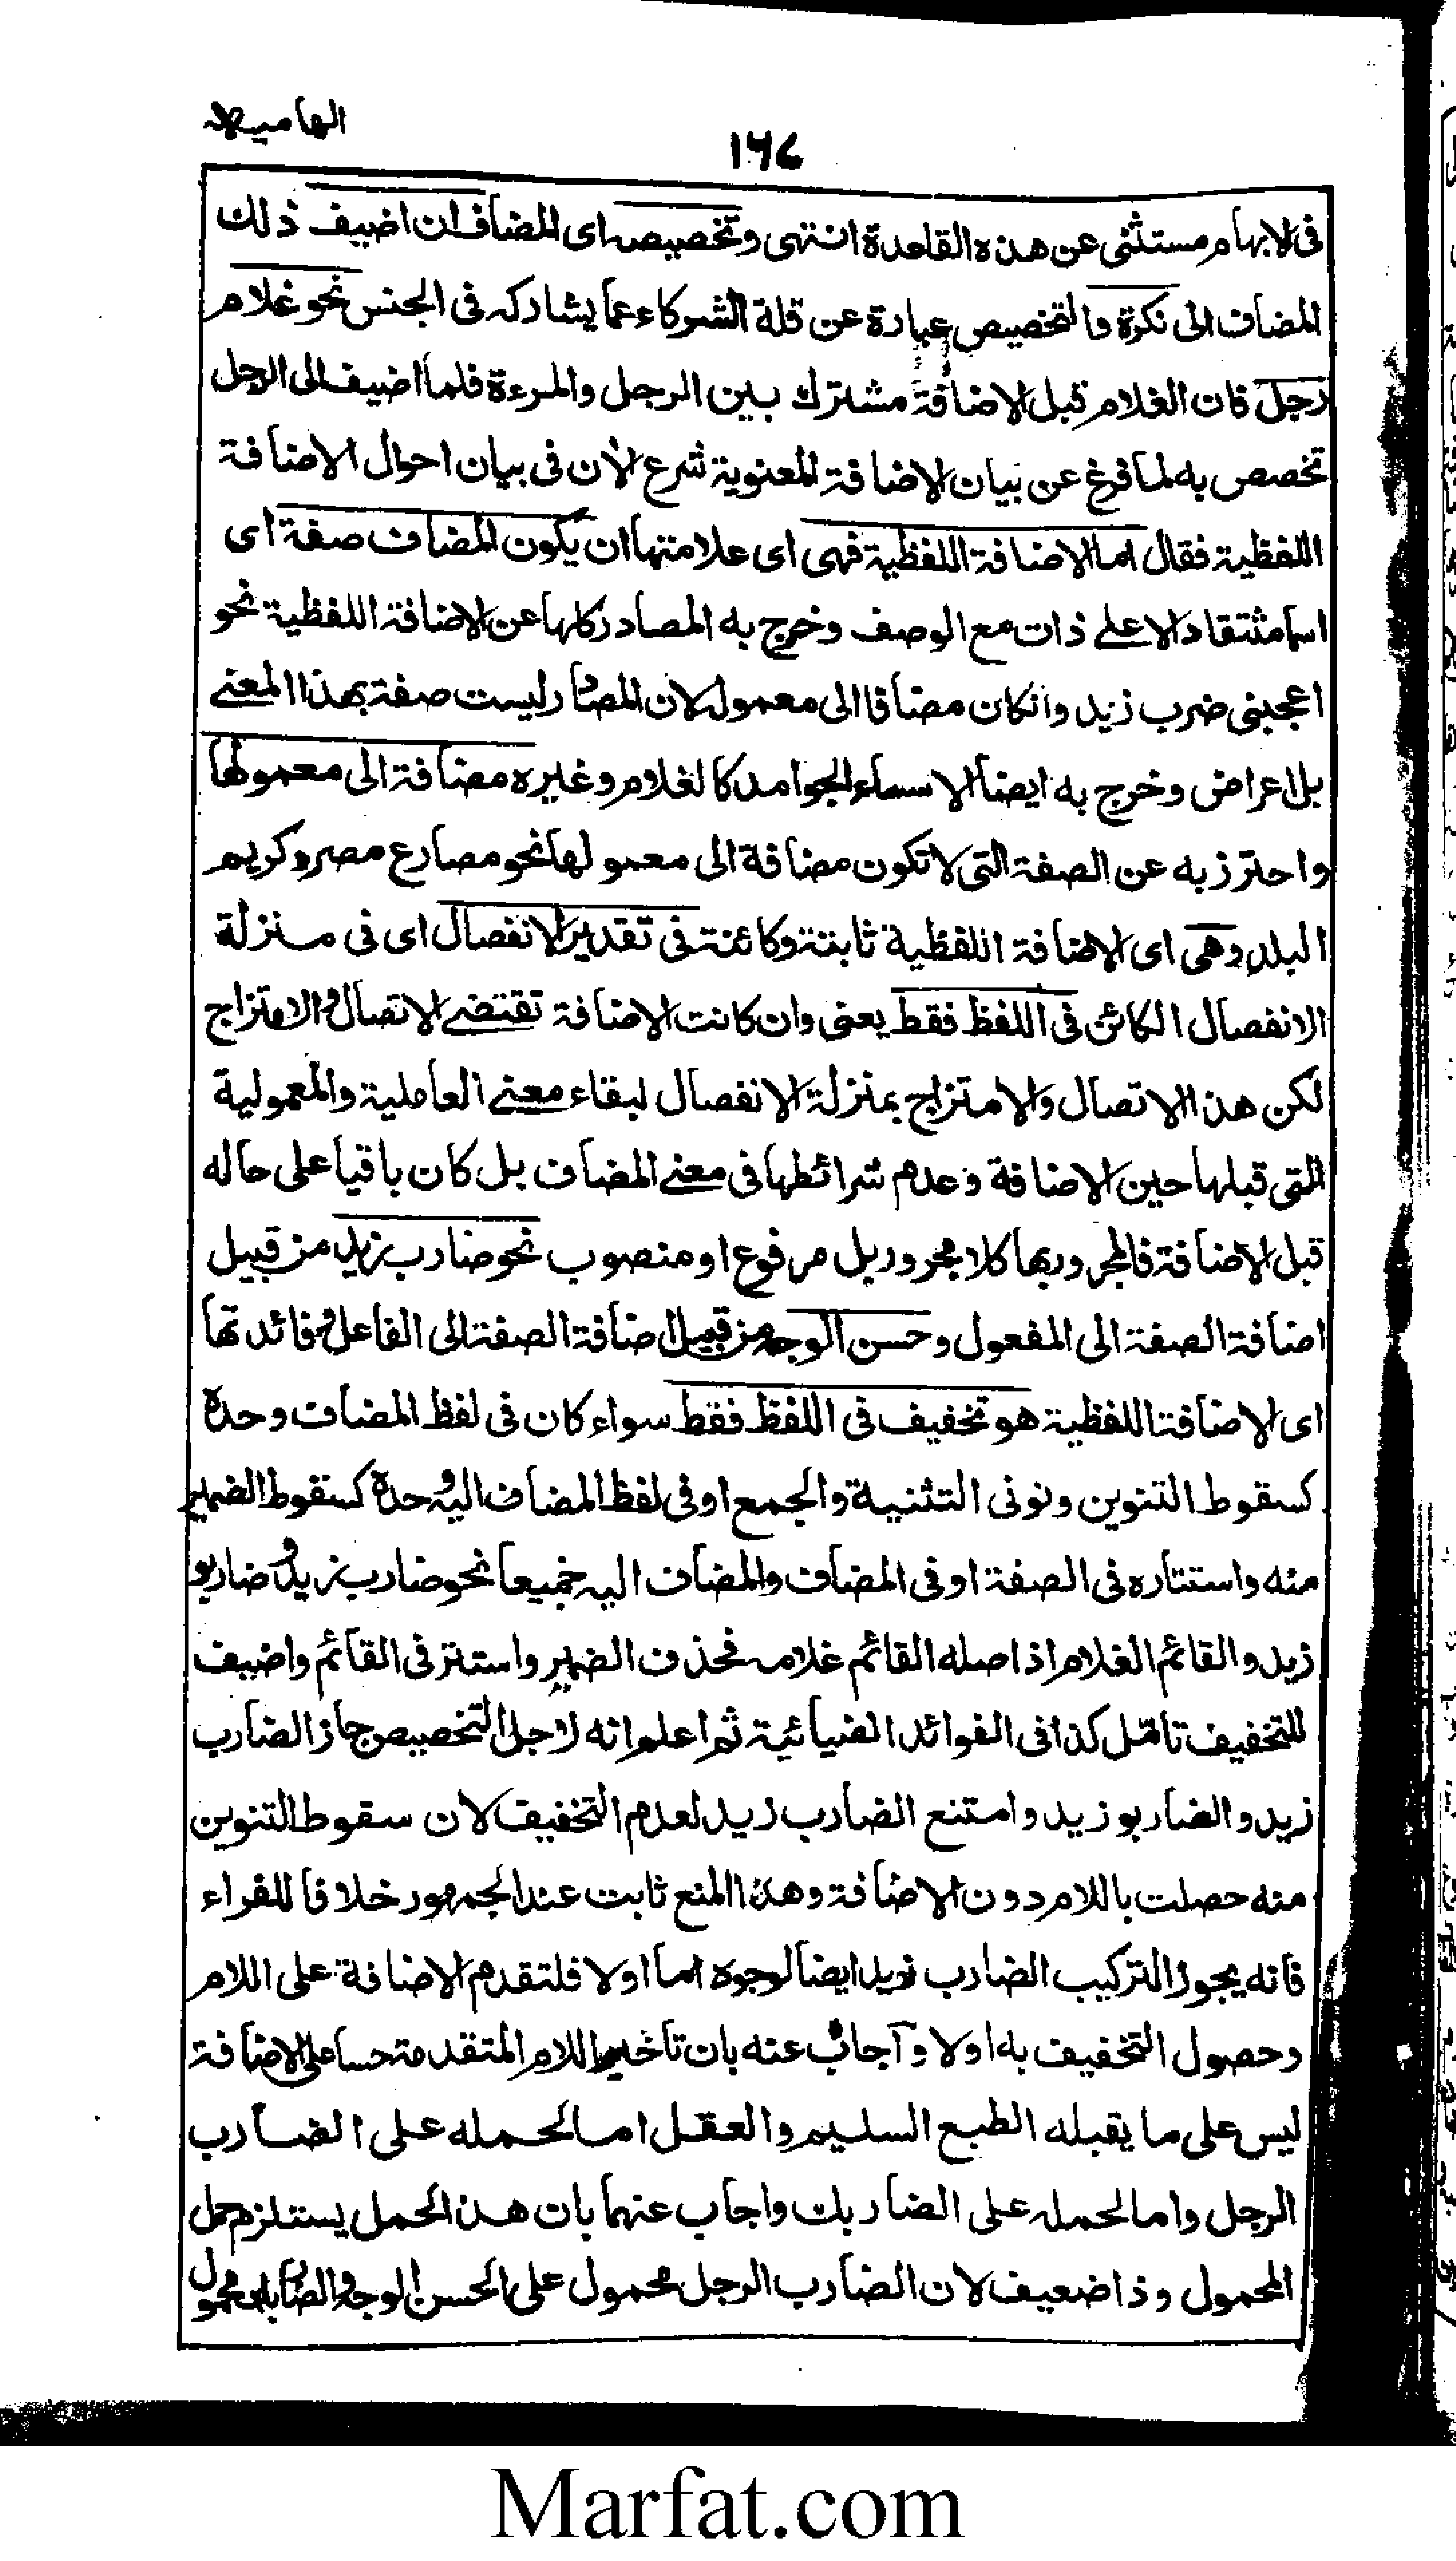 الهامیه
۱۶۷
فی الابهام مستثنی عن هذه القاعدة انتهی وتخصیصه ای المضاف ان اضیف ذلك
المضاف الی نکرة فالتخصیص عبارة عن قلة الشرکاء عما یشارکه فی الجنس نحو غلام
رجل فان الغلام قبل الاضافة مشترك بین الرجل والمرءة فلما اضیف الی الرجل
تخصص به لما فرغ عن بیان الاضافة المعنویة شرع الاٰن فی بیان احوال الاضافة
اللفظیة فقال اما الاضافة اللفظیة فهی ای علامتها ان یکون المضاف صفة ای
اسما مشتقا دالا علے ذات مع الوصف وخرج به المصادر کلها عن الاضافة اللفظیة نحو
اعجبنی ضرب زید وانکان مضافا الی معموله لان المصادر لیست صفة بهذا المعنے
بل اعراض وخرج به ایضا الاسماء الجوامد کالغلام وغیره مضافة الی معمولها
واحترز به عن الصفة التی لا تکون مضافة الی معمولها نحو مصارع مصر وکریم
البلد وهی ای الاضافة اللفظیة ثابتة وکائنة فی تقدیر الانفصال ای فی منزلة
الانفصال الکائن فی اللفظ فقط یعنی وان کانت الاضافة تقتضے الاتصال والامتزاج
لکن هذا الاتصال والامتزاج بمنزلة الانفصال لبقاء معنے العاملیة والمعمولیة
التی قبلها حین الاضافة وعدم شرائطها فی معنے المضاف بل کان باقیا علی حاله
قبل الاضافة فالمجرور بها کلا مجرور بل مرفوع او منصوب نحو ضارب زید من قبیل
اضافة الصفة الی المفعول وحسن الوجه من قبیل اضافة الصفة الی الفاعل وفائدتها
ای الاضافة اللفظیة هو تخفیف فی اللفظ فقط سواء کان فی لفظ المضاف وحدة
کسقوط التنوین ونونی التثنیة والجمع او فی لفظ المضاف الیه وحدة کسقوط الضمیر
منه واستتاره فی الصفة او فی المضاف والمضاف الیه جمیعا نحو ضارب زید وضاربو
زید والقائم الغلام اذ اصله القائم غلامه فحذف الضمیر واستتر فی القائم واضیف
للتخفیف تامّل کذا فی الفوائد الضیائیة ثم اعلم انه لاجل التخصیص جاز الضارب
زید والضاربو زید وامتنع الضارب زید لعدم التخفیف لان سقوط التنوین
منه حصلت باللام دون الاضافة وهذا المنع ثابت عند الجمهور خلافا للفراء
فانه یجوز الترکیب الضارب زید ایضا لوجوه اما اولا فلتقدم الاضافة علی اللام
وحصول التخفیف به اولا وآجاب عنه بان تاخیر اللام المتقدمة حسا علی الاضافة
لیس علی ما یقبله الطبع السلیم والعقل اما لحمله علی الضارب
الرجل واما لحمله علی الضاربك واجاب عنهما بان هذا الحمل یستلزم حمل
المحمول وذا ضعیف لان الضارب الرجل محمول علی الحسن الوجه والضاربك محمول
Marfat.com